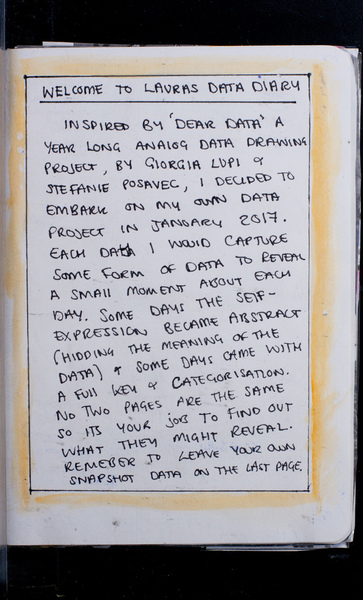 WELCOME TO LAURAS DATA DIARY
INSPIRED BY 'DEAR DATA' A
YEAR LONG ANALOG DATA DRAWING
PROJECT, BY GIORGIA LUPI &
STEFANIE POSAVEC, I DECIDED TO
EMBARK ON MY OWN DATA
PROJECT IN JANUARY 2017.
EACH DATA I WOULD CAPTURE
SOME FORM OF DATA TO REVEAL
A SMALL MOMENT ABOUT EACH
DAY. SOME DAYS THE SELF-
EXPRESSION BECAME ABSTRACT
(HIDDING THE MEANING OF THE
DATA) & SOME DAYS CAME WITH
A FULL KEY & CATEGORISATION.
NO TWO PAGES ARE THE SAME
SO ITS YOUR JOB TO FIND OUT
WHAT THEY MIGHT REVEAL.
REMEBER TO LEAVE YOUR OWN
SNAPSHOT DATA ON THE LAST PAGE.